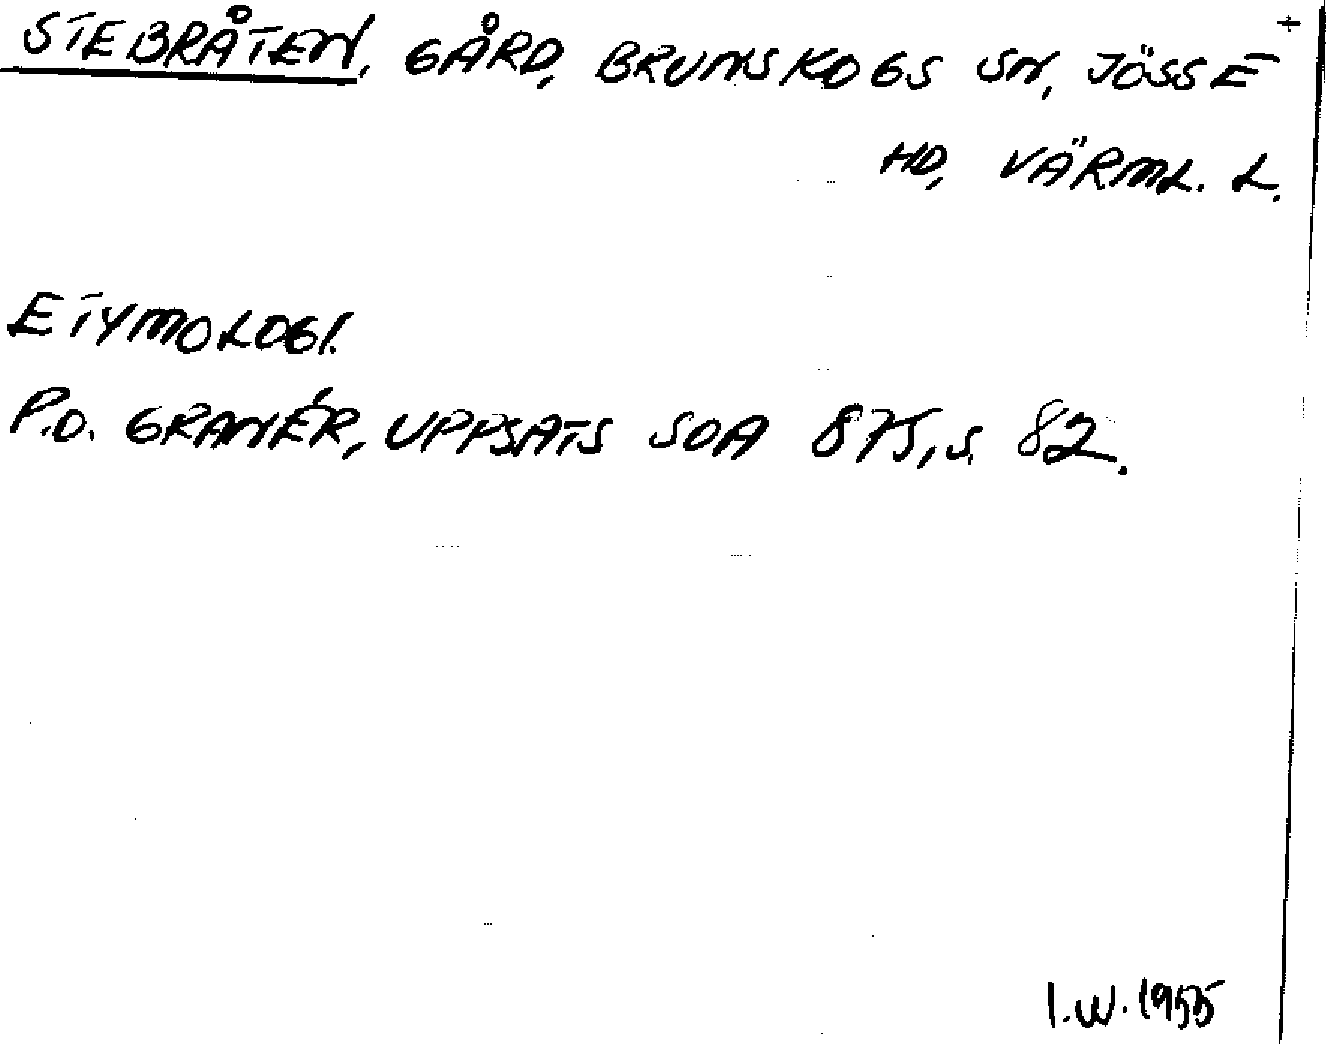 STEBRÅTEN, GÅRD, BRUNSKOGS SN, JÖSSE +
HD, VÄRML. L.
ETYMOLOGI.
P.O. GRANÉR, UPPSATS SOA 875, S. 82.
I.W. 1955